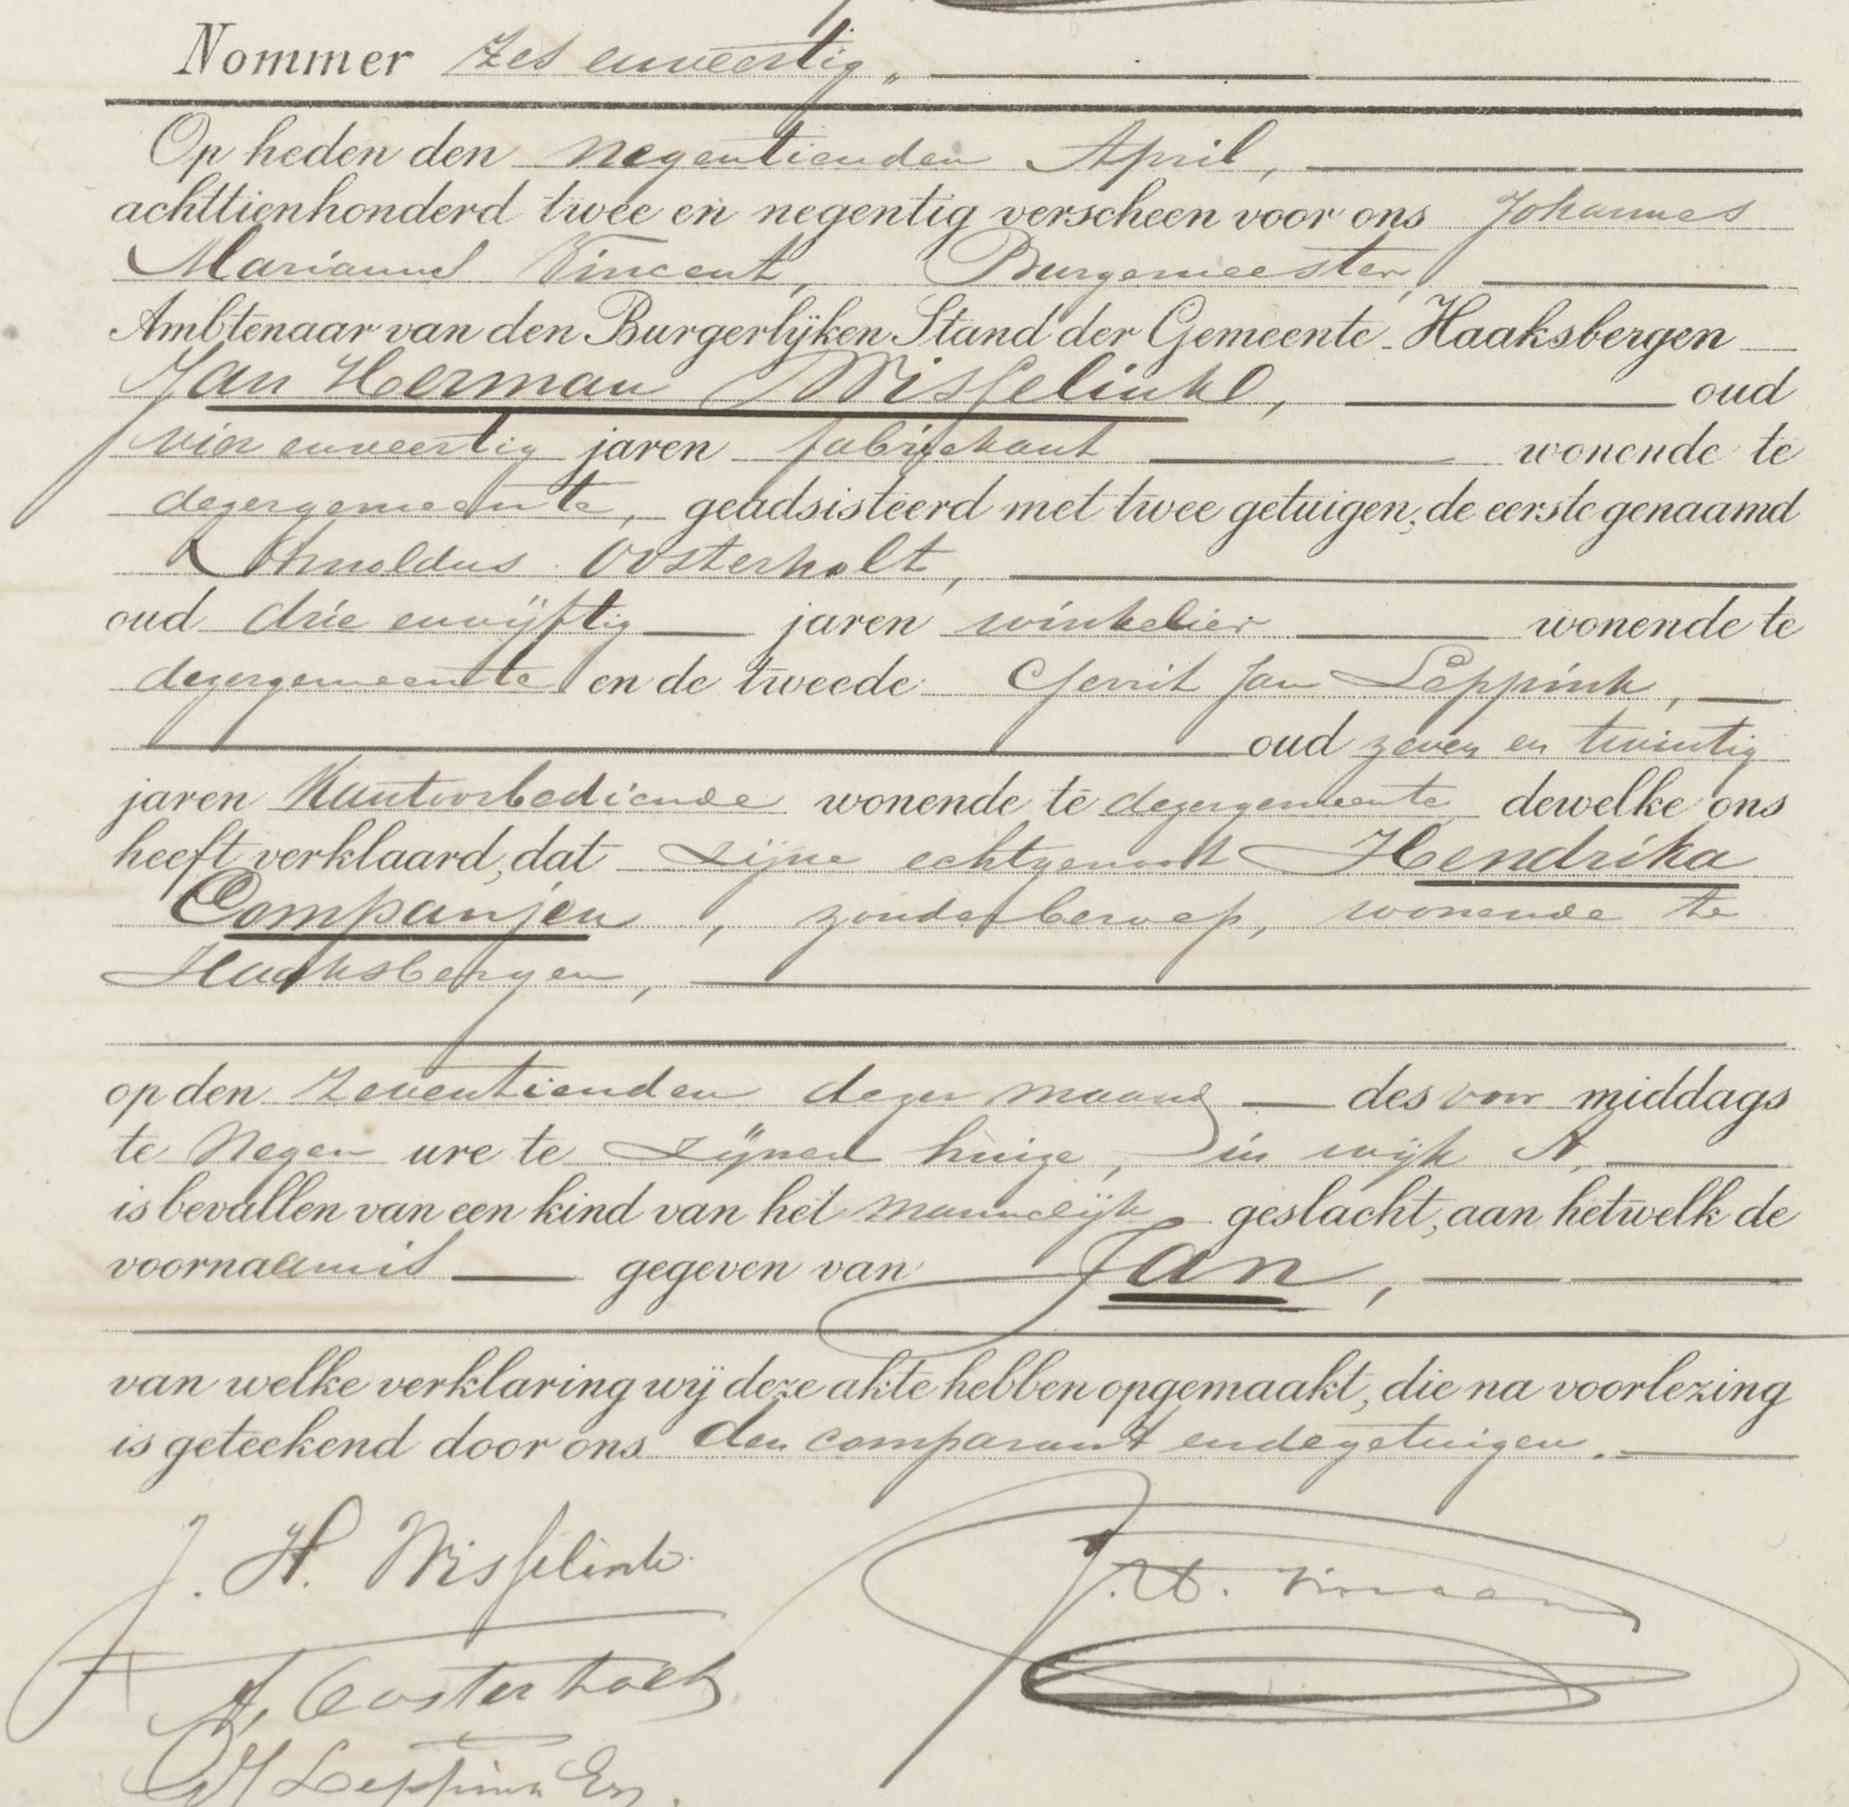 Nommer zes enveertig,
Op heden den negentienden April,
achttienhonderd twee en negentig verscheen voor ons Johannes
Mariannus Vincent, Burgemeester,
Ambtenaar van den Burgerlijken Stand der Gemeente Haaksbergen
Jan Herman Wisselink, oud
vier enveertig jaren fabriekant wonende te
dezergemeente, geadsisteerd met twee getuigen, de eerste genaamd
Arnoldus Oosterholt,
oud drie envijftig jaren winkelier wonende te
dezergemeente en de tweede Gerrit Jan Leppink,
oud zeven en twintig
jaren Kantoorbediende wonende te dezergemeente dewelke ons
heeft verklaard, dat zijne echtgenoot Hendrika
Companjen, zonder beroep, wonende te
Haaksbergen,
op den zeventienden dezer maand des voor middags
te Negen ure te zijnen huize, in wijk A,
is bevallen van een kind van het mannelijk geslacht, aan hetwelk de
voornaam is gegeven van Jan,
van welke verklaring wij deze akte hebben opgemaakt, die na voorlezing
is geteekend door ons den comparant endegetuigen.
J. H. Wisselink
J. M. Vincent
A. Oosterholt
GJ Leppink